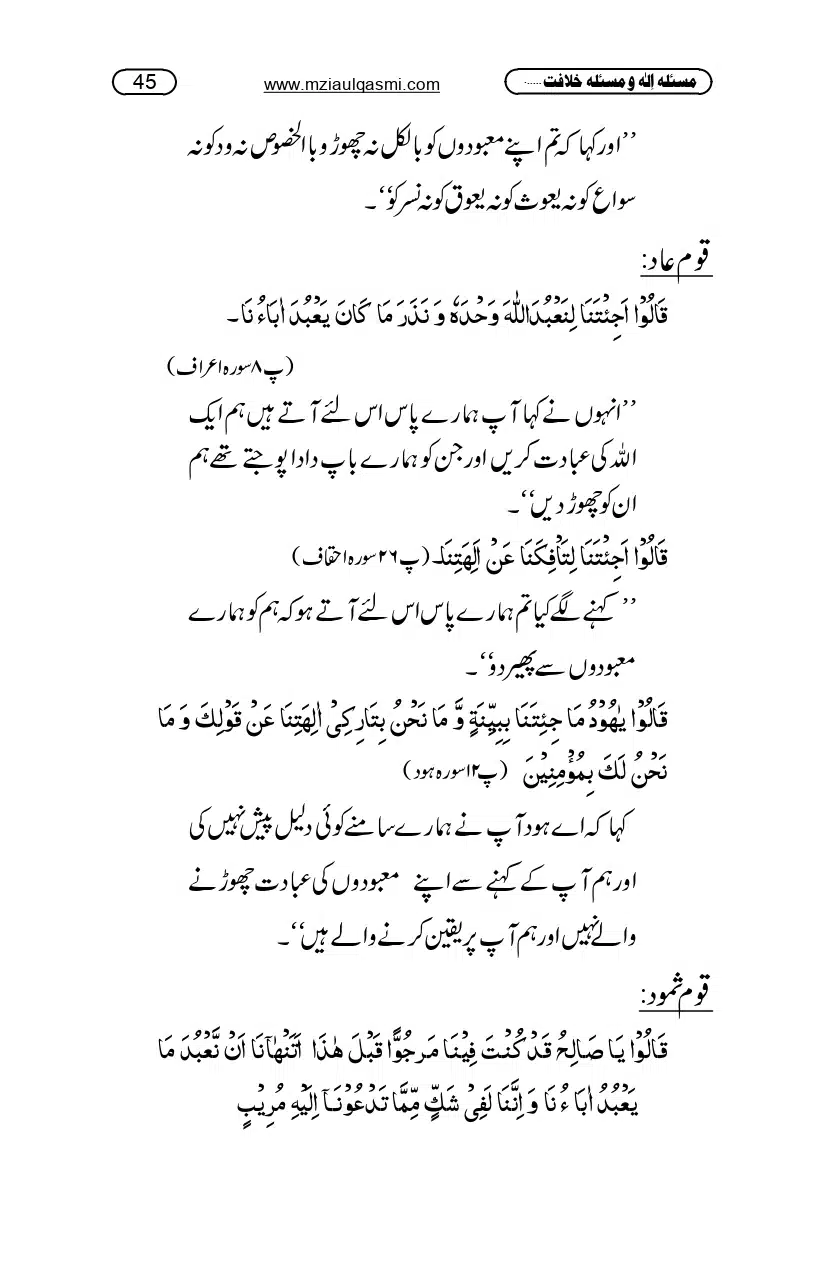 مسئلہ اِلٰہ و مسئلہ خلافت ...... www.mziaulqasmi.com 45
’’اور کہا کہ تم اپنے معبودوں کو بالکل نہ چھوڑو با الخصوص نہ ود کو نہ
سواع کو نہ یغوث کو نہ یعوق کو نہ نسر کو‘‘۔
قوم عاد:
قَالُوْا اَجِئْتَنَا لِنَعْبُدَ اللّٰهَ وَحْدَهٗ وَ نَذَرَ مَا كَانَ يَعْبُدَ اٰبَاءُ نَا۔
(پ۸ سورہ اعراف)
’’انہوں نے کہا آپ ہمارے پاس اس لئے آتے ہیں ہم ایک
اللہ کی عبادت کریں اور جن کو ہمارے باپ دادا پوجتے تھے ہم
ان کو چھوڑ دیں‘‘۔
قَالُوْا اَجِئْتَنَا لِتَاْفِكَنَا عَنْ اٰلِهَتِنَا۔ (پ۲۶ سورہ احقاف)
’’ کہنے لگے کیا تم ہمارے پاس اس لئے آتے ہو کہ ہم کو ہمارے
معبودوں سے پھیر دو‘‘۔
قَالُوْا يٰهُوْدُ مَا جِئِتَنَا بِبِيِّنَةٍ وَّ مَا نَحْنُ بِتَارِكِىْ اٰلِهَتِنَا عَنْ قَوْلِكَ وَ مَا
نَحْنُ لَكَ بِمُؤْمِنِيْنَ (پ۱۲ سورہ ہود)
کہا کہ اے ہود آپ نے ہمارے سامنے کوئی دلیل پیش نہیں کی
اور ہم آپ کے کہنے سے اپنے معبودوں کی عبادت چھوڑنے
والے نہیں اور ہم آپ پر یقین کرنے والے ہیں‘‘۔
قوم ثمود:
قَالُوْا يَا صَالِحُ قَدْ كُنْتَ فِيْنَا مَرجُوًّا قَبْلَ هٰذَا اَتَنْهٰاَنَا اَنْ نَّعْبُدَ مَا
يَعْبُدُ اٰبَاءُ نَا وَ اِنَّنَا لَفِىْ شَكٍّ مِّمَّا تَدْعُوْنَآ اِلَيْهِ مُرِيْبٍ